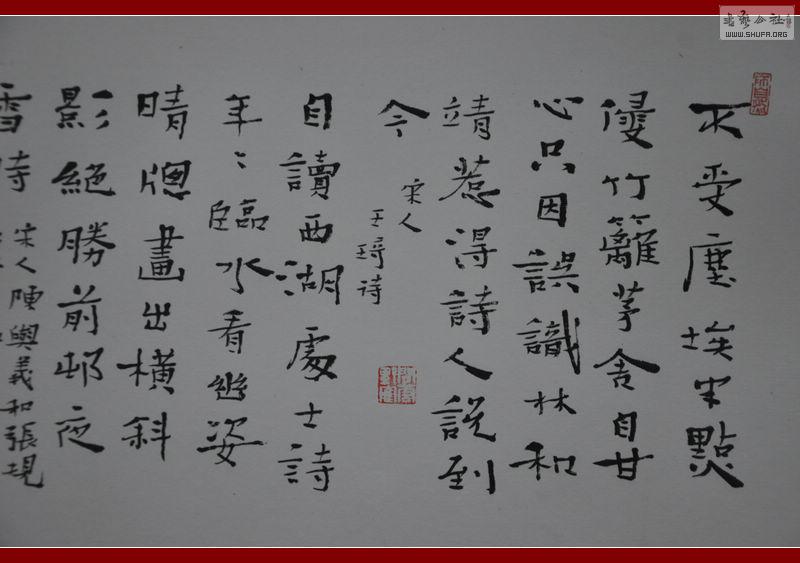 不受塵埃半點
侵竹籬茅舍自甘
心只因誤識林和
靖惹得詩人說到
今
宋人
王琦诗
自讀西湖處士詩
年々臨水看幽姿
晴牕畫出橫斜
影絕勝前邨夜
雪時
宋人陳與義和張規
书艺公社
WWW.SHUFA.ORG